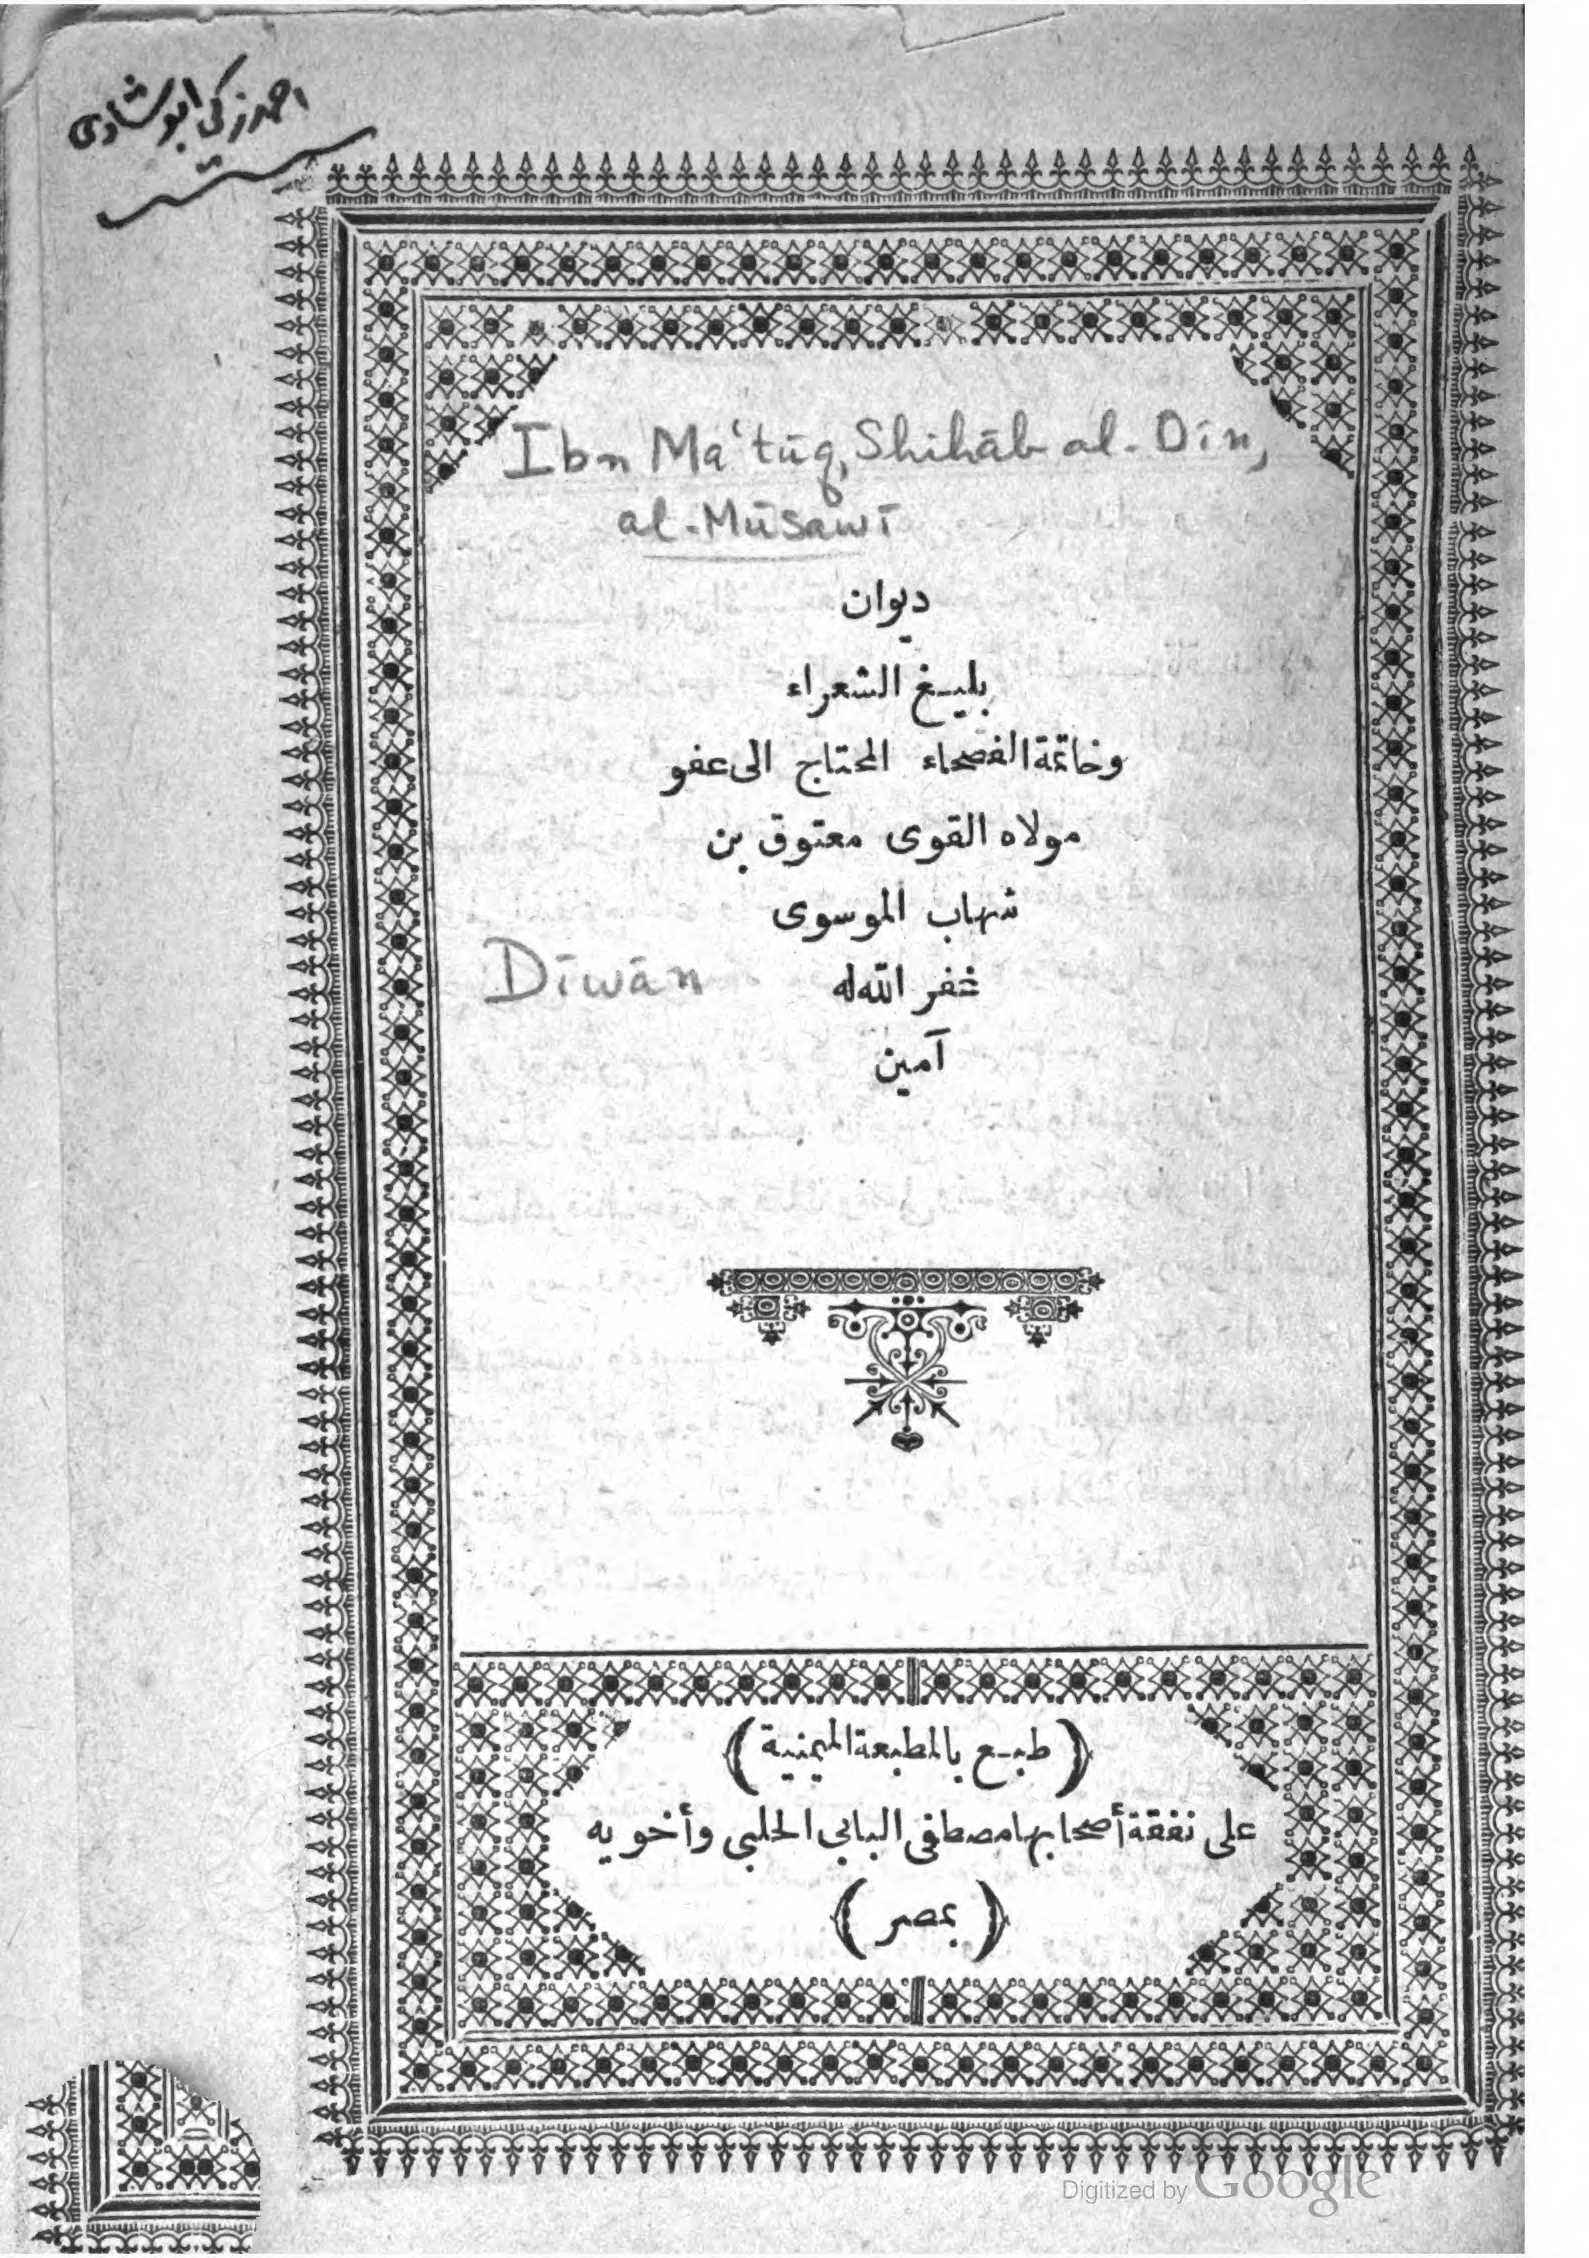 احمد زكي ابو شادي
Ibn Ma‘tūq, Shihāb al-Dīn,
al-Mūsawī
ديوان
بليغ الشعراء
وخاتمة الفصحاء المحتاج الى عفو
مولاه القوى معتوق بن
شهاب الموسوى
غفر الله له
Dīwān
آمين
(طبع بالمطبعة الميمنية)
على نفقة أصحابها مصطفى البابى الحلبى وأخويه
(بمصر)
Digitized by Google